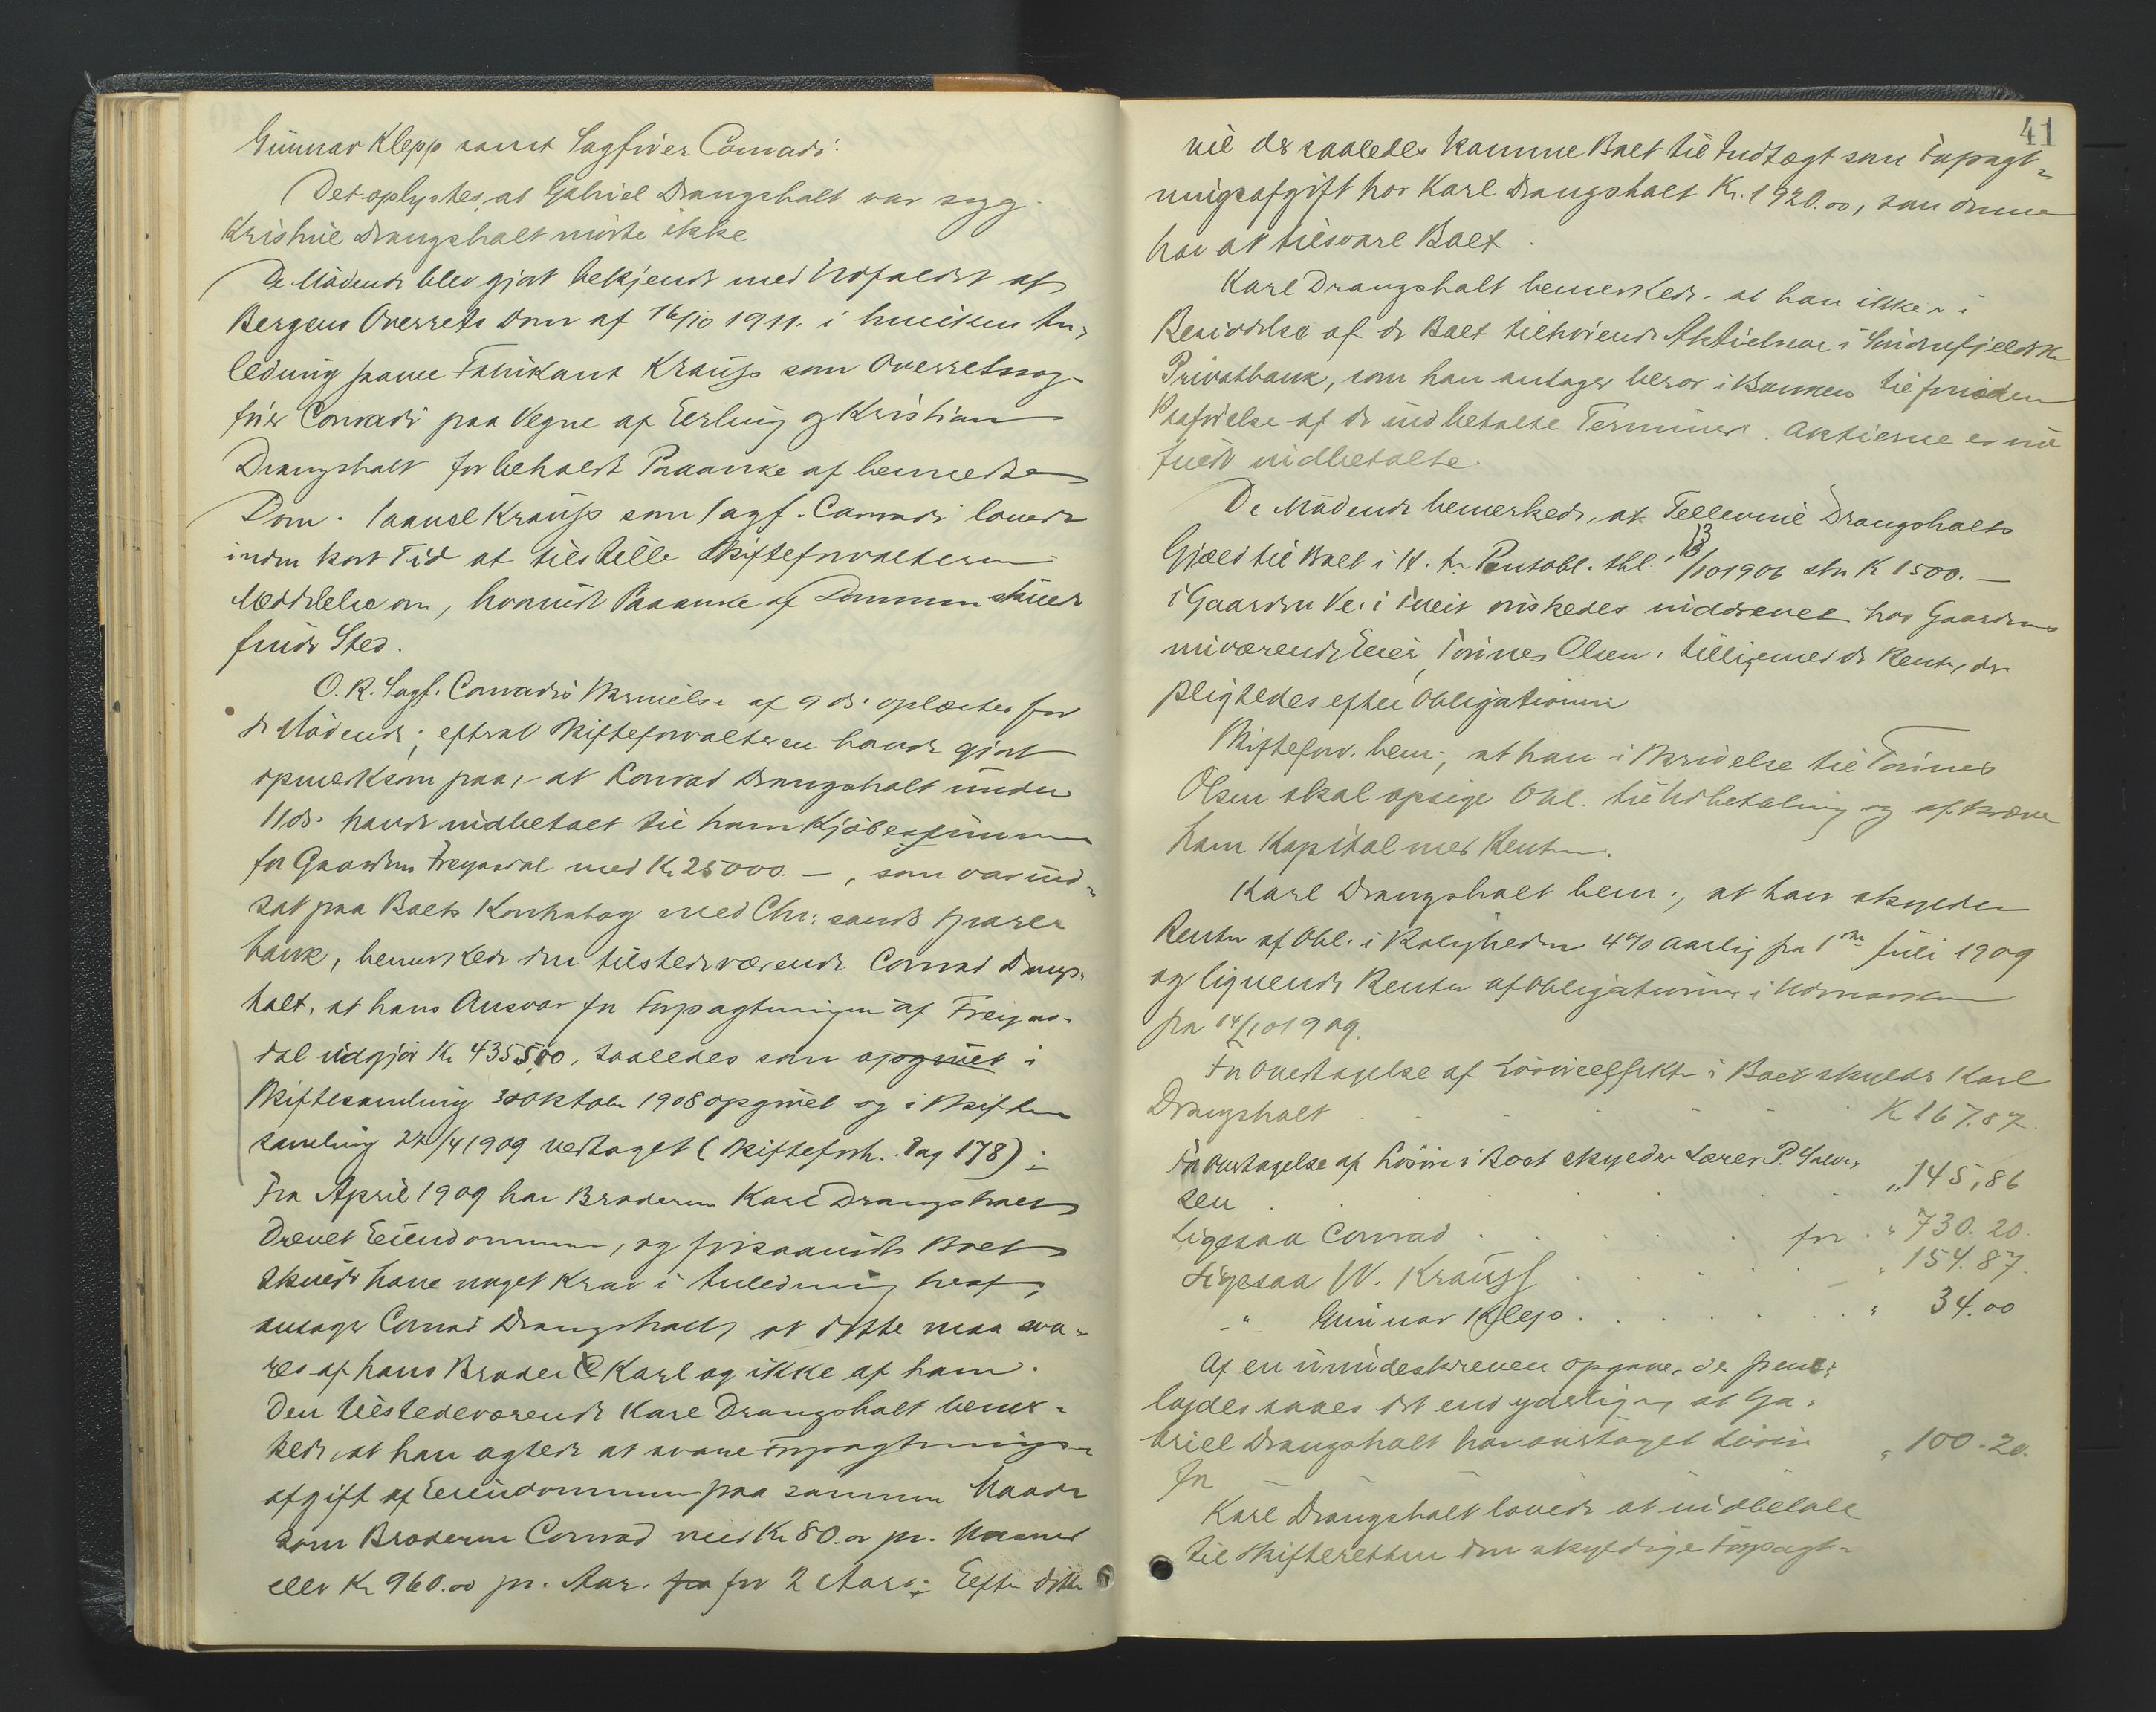 Gunnar Klepp samt Sagfører Conradi.
Det oplystes, at Gabriel Drangsholt var syg.
Kristine Drangsholt mødte ikke
De Mødende blev gjort bekjendt med Udfaldet af
Bergens Overrets Dom af 16/10 1911. i hvilken An-
ledning saavel Fabrikant Krauss som Overretssag-
fører Conradi paa Vegne af Erling og Kristian
Drangsholt forbeholdt Paaanke af bemeldte
Dom. Saavel Krauss som Sagf. Conradi lovede
inden kort Tid at tilstille Skifteforvalteren
Meddelelse om, hvorvidt Paaanke af Dommen skulde
finde Sted.
O. R. Sagf. Conradis Skrivelse af 9 ds. oplæstes for
de Mødende; efterat Skifteforvalteren havde gjort
opmerksom paa, at Conrad Drangsholt under
11 ds. havde indbetalt til ham Kjøbesummen
for Gaarden Freyasdal med Kr 25000.–, som var ind-
sat paa Boets Kontrabog med Chr:sands Spare-
bank, bemerkede den tilstedeværende Conrad Drangs-
holt, at hans Ansvar for Forpagtningen af Freyas-
dal udgjør Kr 4355,00, saaledes som opgivet i
Skiftesamling 30 Oktober 1908 opgivet og i Skifte-
samling 22/4 1909 vedtaget (Skifteforh. Pag 178);
Fra April 1909 har Broderen Karl Drangsholt
drevet Eiendommen, og forsaavidt Boet
skulde have noget Krav i Anledning heraf,
antager Conrad Drangsholt, at dette maa sva-
res af hans Broder Karl og ikke af ham.
Den tilstedeværende Karl Drangsholt bemer-
kede, at han agtede at svare Forpagtnings-
afgift af Eiendommen paa samme Maade
som Broderen Conrad med Kr 80.00 pr. Maaned
eller Kr 960.00 pr. Aar. fra for 2 Aar.; Efter dette
41
vil der saaledes komme Boet til Indtægt som Forpagt-
ningsafgift hos Karl Drangsholt Kr. 1920.00, som denne
har at tilsvare Boet.
Karl Drangsholt bemerkede, at han ikke er i
Besiddelse af de Boet tilhørende Aktiebreve i Søndenfjeldske
Privatbank, som han antager beror i Banken til
af de indbetalte Terminer. Aktierne er nu
fuldt indbetalte.
De Mødende bemerkede, at Drangsholts
Gjæld til Boet i H. t. Pantobl. thl. 13/10 1906 str. K 1500.–
i Gaarden Ve i Tveit ønskedes inddrevet hos Gaardens
nuværende Eier, Tønnes Olsen, tilligemed de Renter, der
pligtedes efter Obligationen
Skifteforv. bem., at han i Skrivelse til Tønnes
Olsen skal opsige Obl. til Udbetaling og afkræve
ham Kapital med Renter.
Karl Drangsholt bem., at han skylder
Renter af Obl. i Roligheden 4% aarlig fra 1ste Juli 1909
og lignende Renter af Obligationen i Udmarken
fra 14/10 1909.
For Overtagelse af Løsøreeffekter i Boet skylder Karl
Drangsholt . . . . . . Kr 167.87.
For Overtagelse af Løsøre i Boet skylder Lærer P. Salve-
sen . . . . . . „ 145,86
Ligesaa Conrad . . . . . for . „ 730.20
Ligesaa W. Krauss . . . . . „ 154.87.
„ Gunnar Klepp . . . . . . „ 34.00
Af en underskreven Opgave, der frem-
lagdes saaes det end yderligere, at Ga-
briel Drangsholt har overtaget Løsøre
for „ 100.20.
Karl Drangsholt lovede at indbetale
til Skifteretten den skyldige Forpagt-